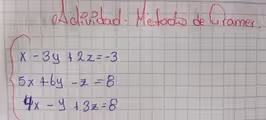 Actividad. Metodo de Cramer.
x - 3y + 2z = -3
5x + 6y - z = 8
4x - y + 3z = 8